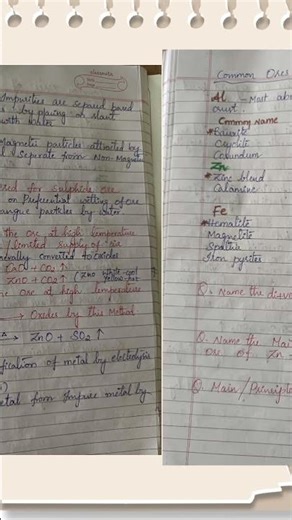 Impurities are separed based
by placing on slant
with water
Magnetic particles attracted by
separate from Non-Magnetic
for sulphide ore
on Preferential wetting of ore
gangue particles by water
the ore at high temperature
/limited supply of air
converted to oxides
CaO + CO2 ↑
ZnO + CO2 ↑ (ZnO white-cold
ore at high temperature
→ Oxides by this Method
→ ZnO + SO2 ↑
fication of metal by electrolysis
etal from Impure metal by
Common Ores
Al - Most ab
crust.
Common Name
*Bauxite
Cryolite
Corundum
Zn
*Zinc blend
Calamine
Fe
*Hematite
Magnetite
Iron pyrites
Q. Name the
Q. Name the Mai
Ore of Zn -
Q. Main/Principle